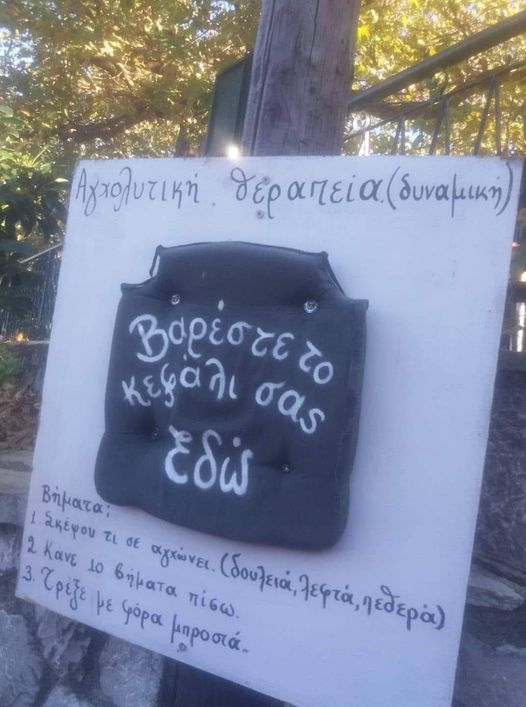 Αγχολυτική θεραπεία. (δυναμική)
Βαρέστε το
κεφάλι σας
Εδώ
Βήματα:
1. Σκέψου τι σε αγχώνει. (δουλειά, λεφτά, πεθερά)
2. Κάνε 10 βήματα πίσω.
3. Τρέξε με φόρα μπροστά.